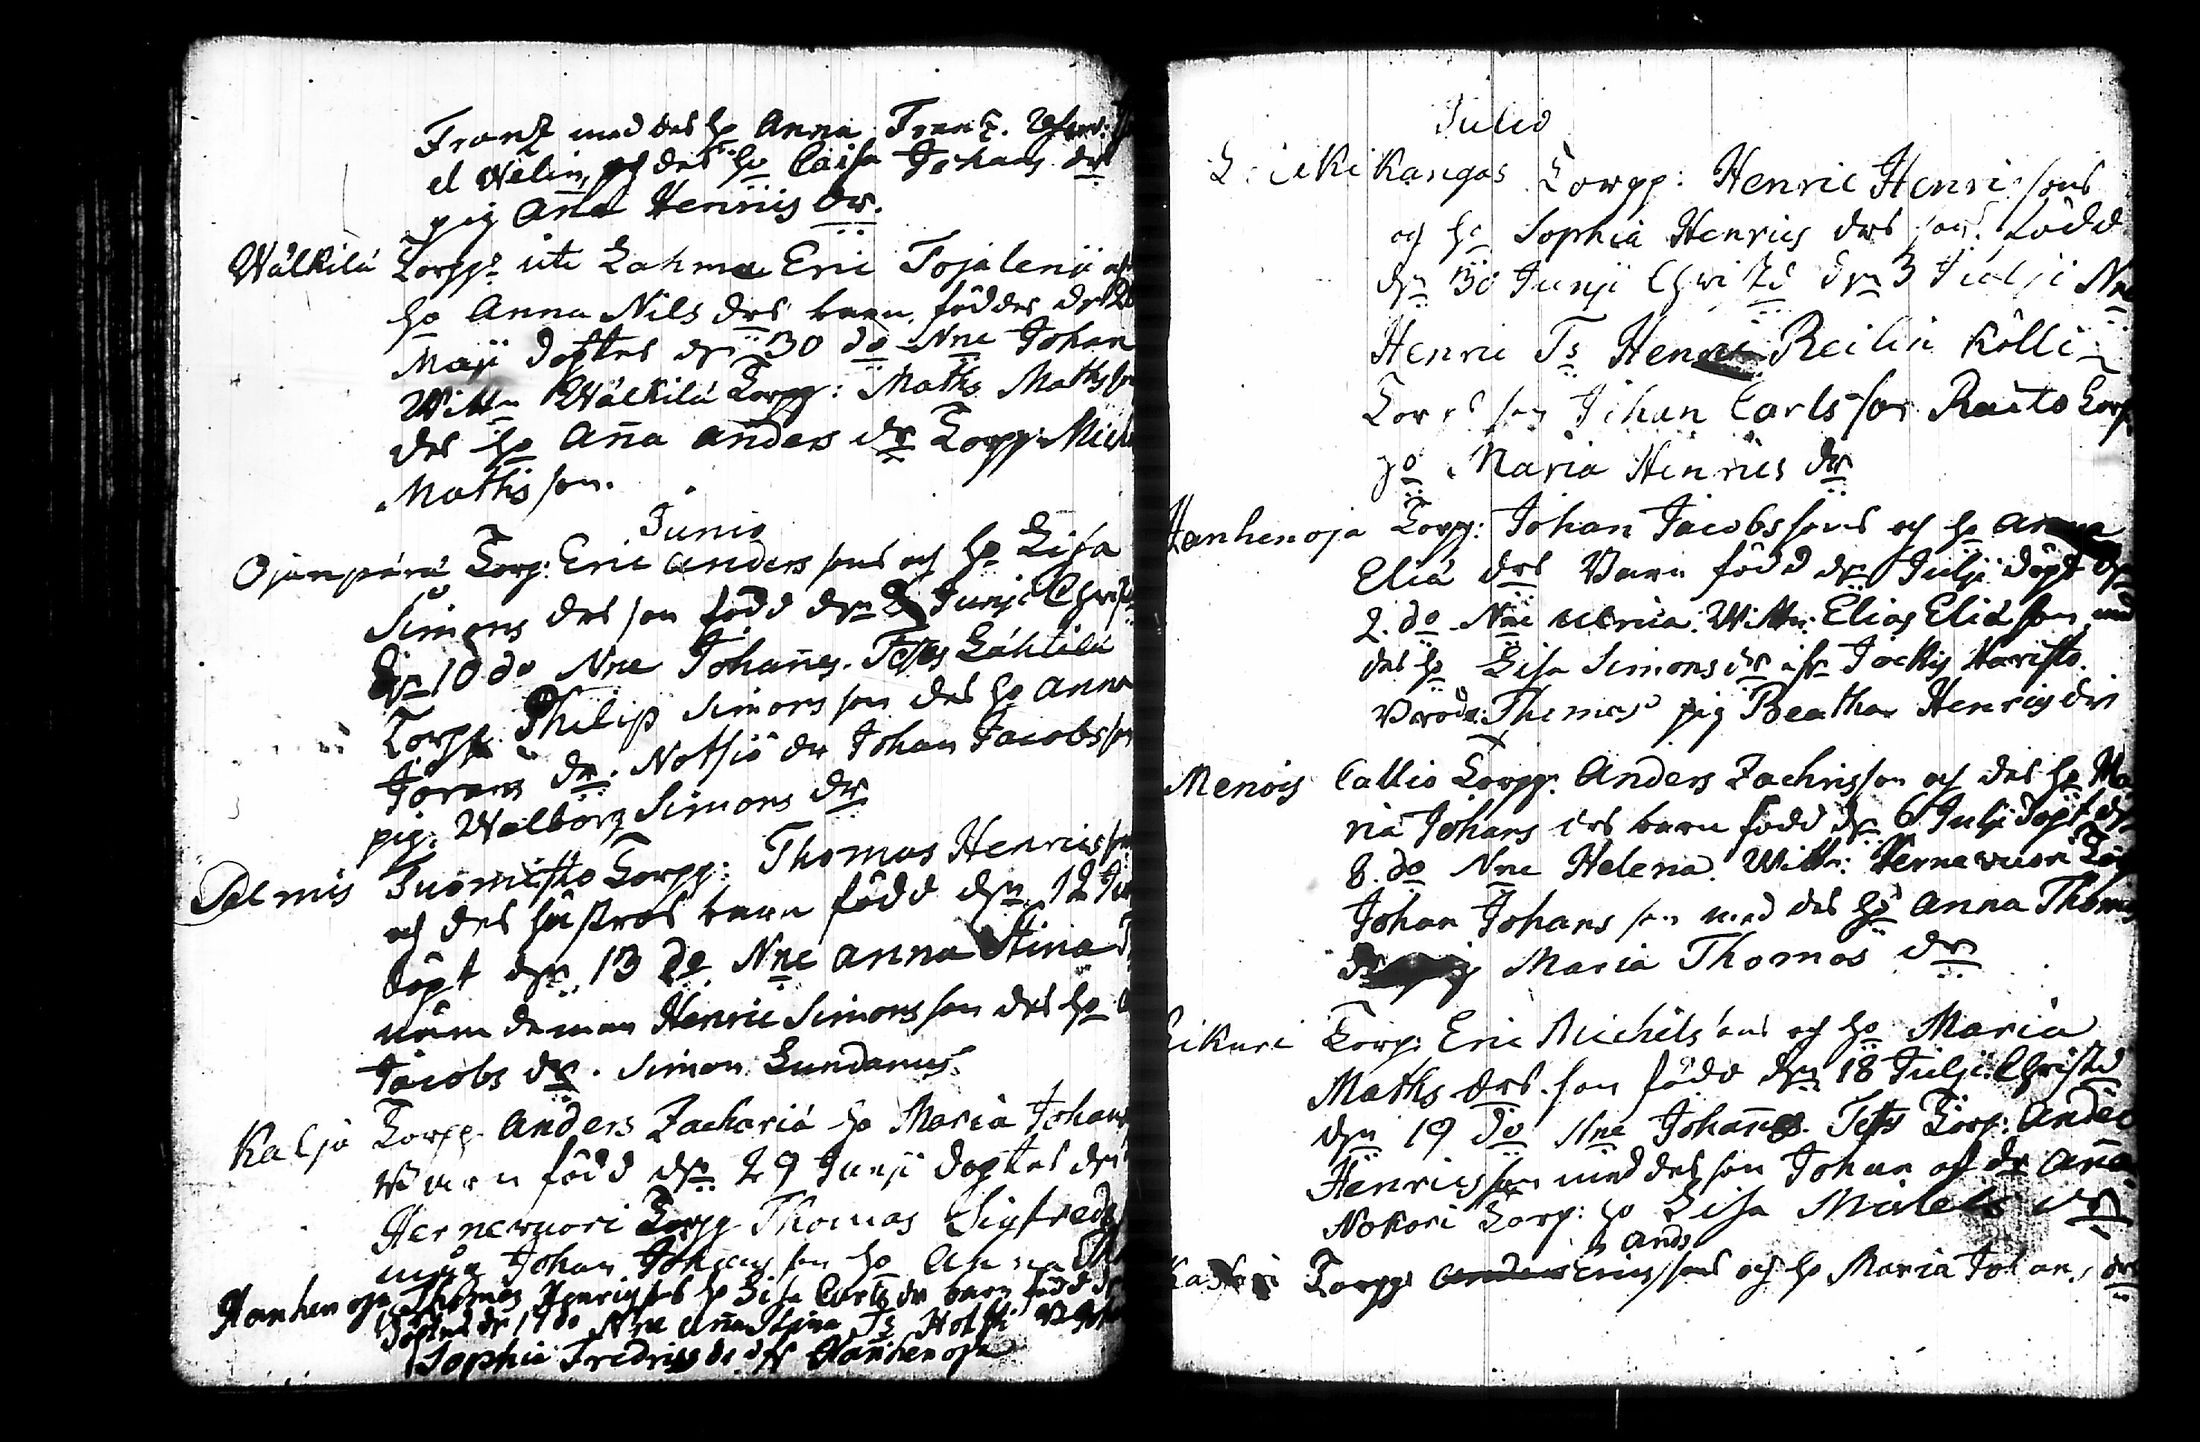 Frantz med des ho Anna Frantz.
el Welin, och des ho Caisa Johans dr
pig Aña Henrics dr.
Wälkilä Torpp: ute Lahma Eric Tojalenii och
ho Anna Nils drs barn, föddes dn
Maji döptes dn 30 do Nne Johan
Wittn Wälkilä Torpp: Maths Mathsson
des ho Aña Anders dr Torpp: Mich
Mathsson.
Junio
Ojanperä Torp: Eric Anderssons och ho Lisa
Simons drs son född dn 2 Junji Christ
dn 10 do Nne Johañes. Testes Lähtilä
Torpp: Philip Simonsson des ho Anna
Jörans dr. Notsiö dr Johan Jacobsson
pig. Walborg Simons dr
Palmis Tuomisto Torpp: Thomas Henricsson
och des hustrus barn född dn 12 Jun
döpt dn 13 do Nne Anna Stina
nämdeman Henric Simonsson des ho
Jacobs dr. Simon Sundanus.
Kaljo Torpp. Anders Zachariä ho Maria Johans
Barn född dn 29 Junji döptes dn
Hernewuori Torpp Thomas Sigfreds
måg Johan Johansson ho Anna
Hanhenoja Thomas Henricssos ho Lisa Carls dr barn född dn
döptes dn 17 do Nne Aña Stina Ts
Sophia Fredrics dr ifr Hanhenoja
Julio
kangas Torpp: Henric Henricsons
och ho Sophia Henrics drs son. född
dn 30 Junji Christd dn 3 Julji Nne
Henric Ts Henric Reilin Kölli
Torps son Johan Carlsson Rauto Torp
ho Maria Henrics dr
Hanhenoja Torpp: Johan Jacobssons och ho Anna
Eliä drs Barn född dn Julji döpt dn
2. do Nne Ulrica. Wittn: Elias Eliäson med
des ho Lisa Simons dr ifr Jockis Haristo.
Brodr: Thomas pig Beatha Henrics dr
Menois Callio Torpp: Anders Zachrisson och des ho Ma
ria Johans drs barn född dn 6 Julji döpt dn
8. do Nne Helena. Wittn: Hernewuori Torp
Johan Johansson med des ho Anna Thomas
dr pig Maria Thomas dr
Torp: Eric Michelssons och ho Maria
Maths drs son född dn 18 Julji Christd
dn 19 do Nne Johañes. Tests Torp: Anders
Henricsson med des son Johan och dr Aña
Nokori Torp: ho Lisa Michels dr
Ands
Torpp: Anders Ericssons och ho Maria Johans drs